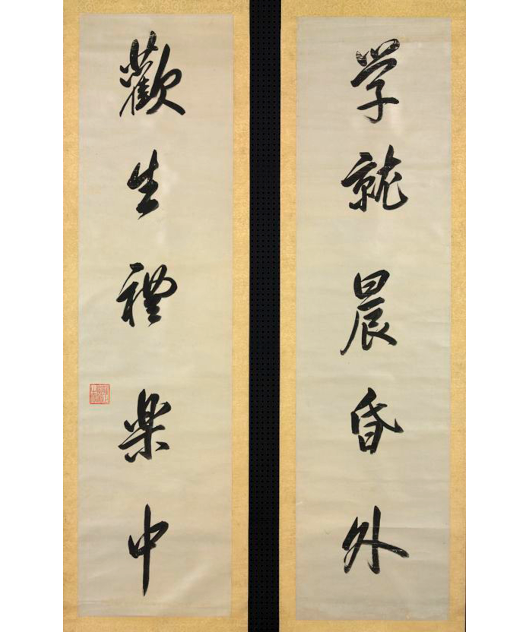 学就晨昏外
歡生禮楽中